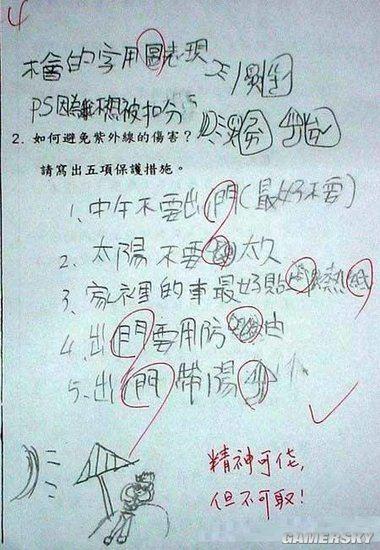 4
不會的字用圖表現
PS因為我不想被扣分
2. 如何避免紫外線的傷害?
請寫出五項保護措施。
1、中午不要出門(最好不要)
2、太陽不要 太久
3、家裡的車最好貼 熱紙
4、出門要用防
5、出門帶陽
精神可佳,
但不可取!
GAMERSKY